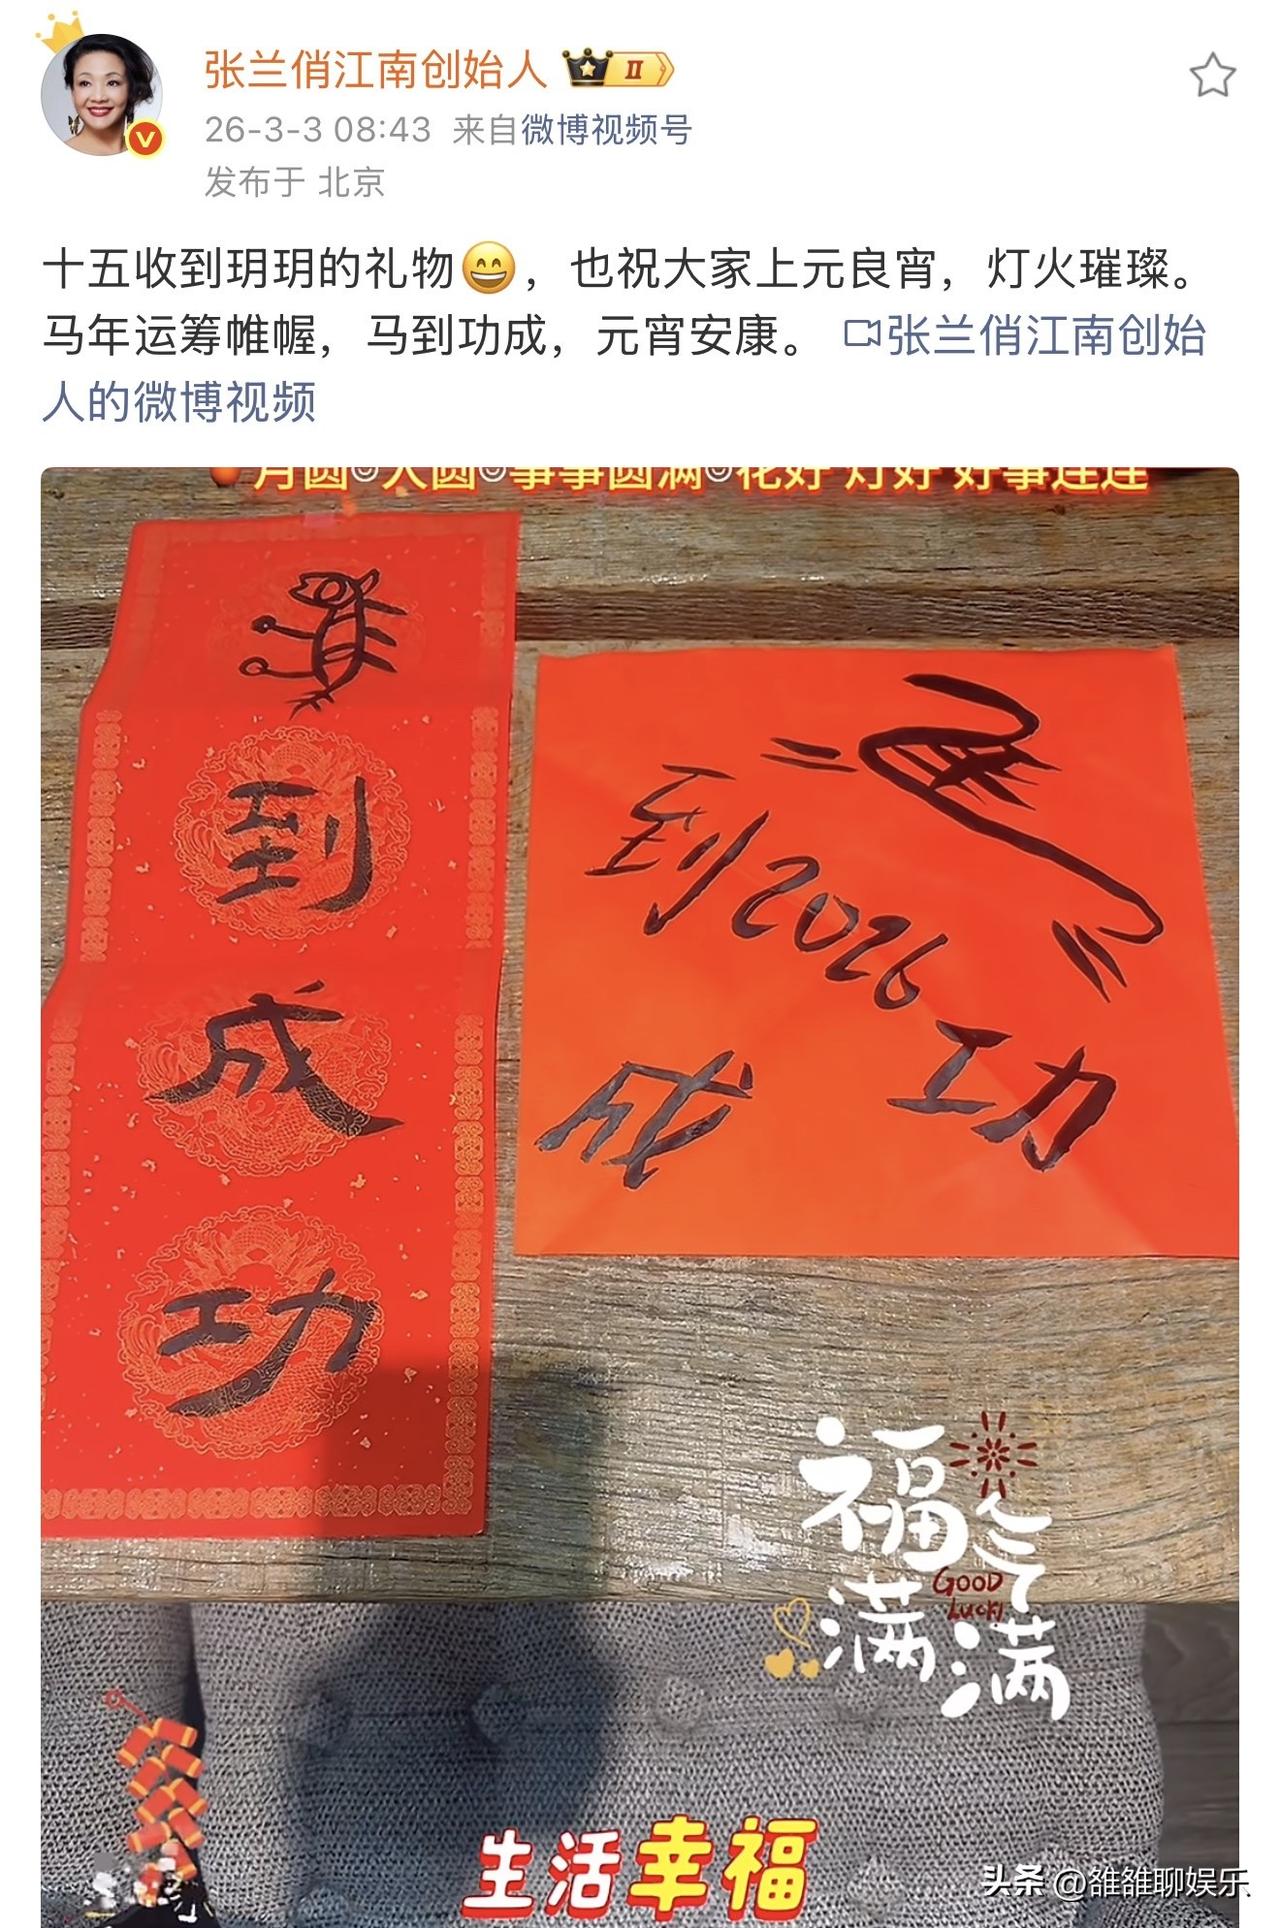 张兰俏江南创始人 II
26-3-3 08:43 来自微博视频号
发布于 北京
十五收到玥玥的礼物😄，也祝大家上元良宵，灯火璀璨。
马年运筹帷幄，马到功成，元宵安康。张兰俏江南创始
人的微博视频
月圆 人圆 事事圆满 花好 灯好 好事连连
到
成
功
到2026
功
成
福气
GOOD
LUCK
满满
生活幸福
头条 @雒雒聊娱乐